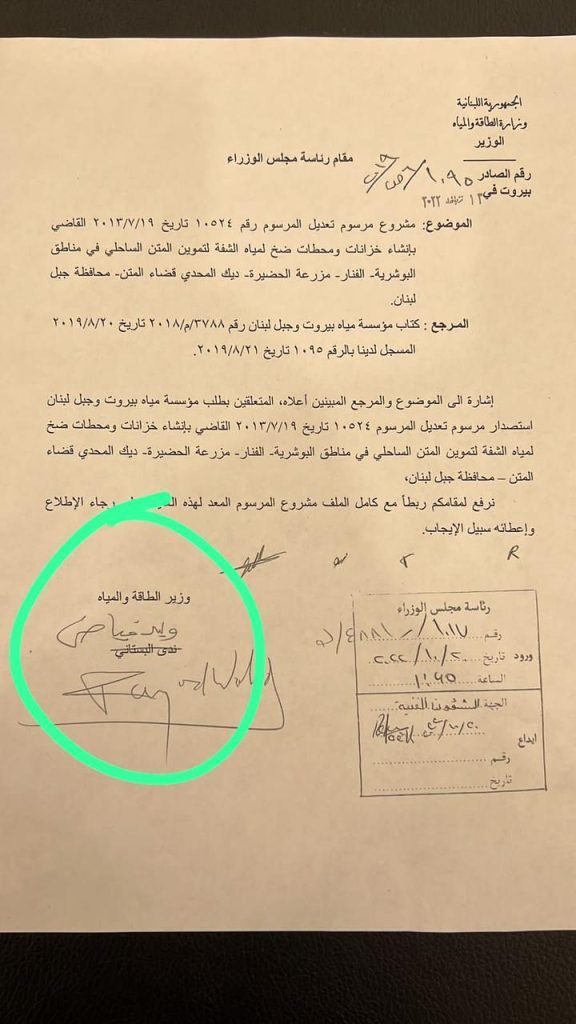 الجمهورية اللبنانية
وزارة الطاقة والمياه
الوزير
مقام رئاسة مجلس الوزراء
رقم الصادر ١٠٩٥/
بيروت في ٢٠٢٢
الموضوع: مشروع مرسوم تعديل المرسوم رقم ١٠٥٢٤ تاريخ ٢٠١٣/٧/١٩ القاضي
بإنشاء خزانات ومحطات ضخ لمياه الشفة لتموين المتن الساحلي في مناطق
البوشرية- الفنار- مزرعة الحضيرة- ديك المحدي قضاء المتن- محافظة جبل
لبنان.
المرجع : كتاب مؤسسة مياه بيروت وجبل لبنان رقم ٣٧٨٨/م/٢٠١٨ تاريخ ٢٠١٩/٨/٢٠
المسجل لدينا بالرقم ١٠٩٥ تاريخ ٢٠١٩/٨/٢١.
إشارة الى الموضوع والمرجع المبينين أعلاه، المتعلقين بطلب مؤسسة مياه بيروت وجبل لبنان
استصدار مرسوم تعديل المرسوم ١٠٥٢٤ تاريخ ٢٠١٣/٧/١٩ القاضي بإنشاء خزانات ومحطات ضخ
لمياه الشفة لتموين المتن الساحلي في مناطق البوشرية- الفنار- مزرعة الحضيرة- ديك المحدي قضاء
المتن – محافظة جبل لبنان،
نرفع لمقامكم ربطاً مع كامل الملف مشروع المرسوم المعد لهذه رجاء الإطلاع
وإعطائه سبيل الإيجاب.
وزير الطاقة والمياه
وليد فياض
ندى البستاني
Fayad Walid
رئاسة مجلس الوزراء
رقم ١٠١٧/
ورود تاريخ ٢٠٢٢/١٠/٢٠
الساعة
الجهة الشؤون الفنية
ايداع
رقم
تاريخ